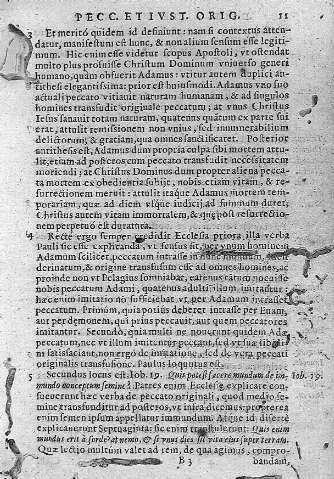 PECC. ET IVST. ORIG. 11
3 Et meritò quidem id definiunt: nam si contextus attendatur, manifestum est hunc, & non alium sensum esse legitimum. Hic enim esse videtur scopus Apostoli, vt ostendat
multo plus profuisse Christum Dominum vniuerso generi
humano, quàm obfuerit Adamus: vtitur autem duplici antithesi elegantissima: prior est huiusmodi. Adamus vno suo
actuali peccato vitiauit naturam humanam, & ad singulos
homines transfudit originale peccatum; at vnus Christus
Iesus sanauit totam naturam, quatenus quātum ex parte sui
erat, attulit remissionem non vnius, sed innumerabilium
delictorum, & gratiam, qua omnes sanctificaret. Posterior
antithesis est, Adamus dum propria culpa sibi mortem attulit, etiam ad posteros cum peccato transfudit necessitatem
moriendi; at Christus Dominus dum propter aliena peccata mortem ex obedientia subijt, nobis etiam vitam, & resurrectionem meruit: attulit itaque Adamus mortem temporariam, quæ ad diem vsque iudicij ad summum duret;
Christus autem vitam immortalem, & quę post resurrectionem perpetuò est duratura.
4 Recte ergo semper credidit Ecclesia priora illa verba
Pauli sic esse explicanda, vt sensus sit, per vnum hominem
Adamum scilicet, peccatum intrasse in hunc mundum,
& origine transfusum esse ad omnes homines, ac
proinde non vt Pelagius somniabat, eatenus tantùm nocuisse
nobis peccatum Adami, quatenus adulti illum imitantur:
hæc enim imitatio nō sufficiebat vt per Adamum intrasset
peccatum. Primùm, quia potiùs deberet intrasse per Euam,
aut per dæmonem, qui prius peccauit, aut quem peccatores
imitantur. Secundò, quia multis nocuerunt quidem Adæ
peccatum, nec vt illum imitarentur peccant, sed vt suæ libidini satisfaciant, non ergo de imitatione, sed de vera peccati
originalis transfusione Paulus loquutus est.
5 Secundus locus est Iob. 19. Quis potest facere mundum de immundo conceptum semine? Patres enim Ecclesiæ explicare consueuerunt hæc verba de peccato originali, quod medio semine transfunditur ad posteros, vt infra dicemus: propterea
enim semen ipsum appellatur immundum. Atque id disertè
explicarunt Septuaginta: sic enim transtulerunt. Quis enim
mundus erit à sorde? at nemo, & si vnus dies sit vita eius super terram.
Quæ lectio multum valet ad rem, de qua agimus, comprobandam,
Iob. 19.
B 3